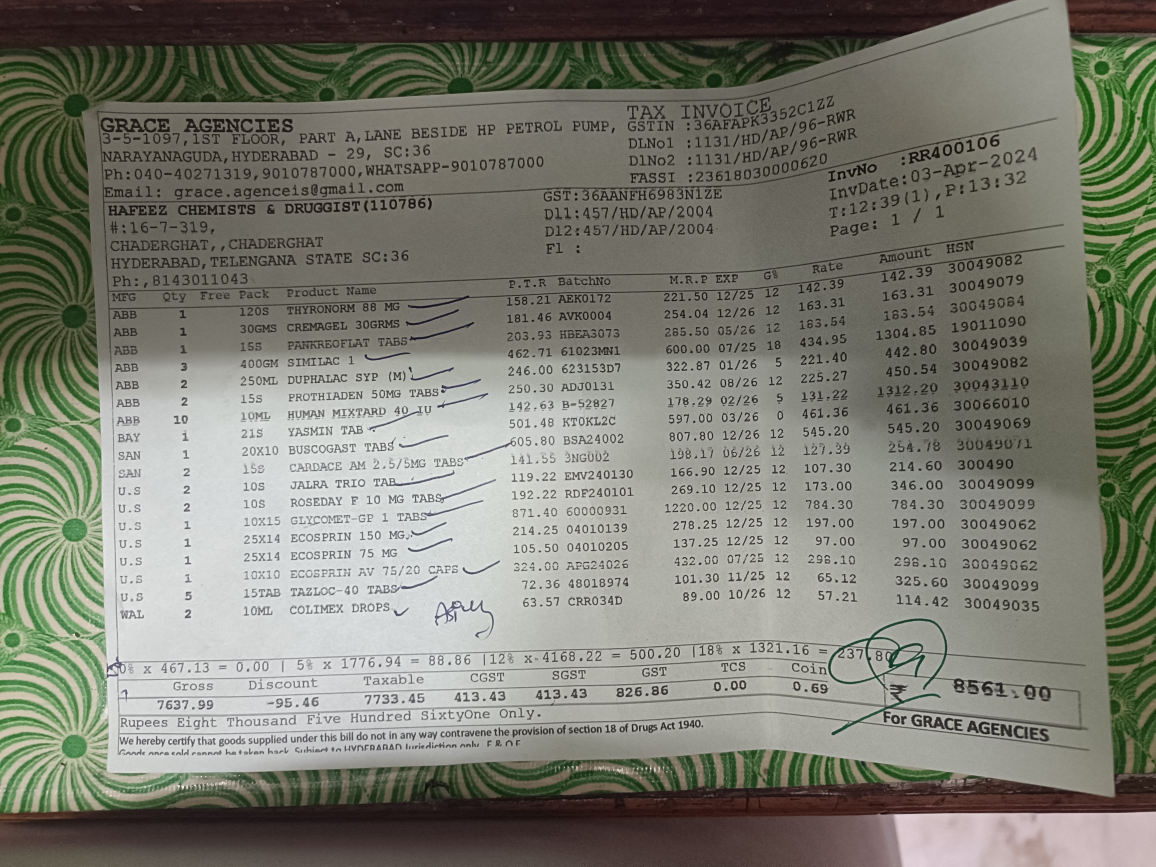 GRACE AGENCIES TAX INVOICE
3-5-1097,1ST FLOOR, PART A,LANE BESIDE HP PETROL PUMP, GSTIN :36AFAPK3352C1ZZ
NARAYANAGUDA,HYDERABAD - 29, SC:36 DLNo1 :1131/HD/AP/96-RWR
Ph:040-40271319,9010787000,WHATSAPP-9010787000 DlNo2 :1131/HD/AP/96-RWR
Email: grace.agenceis@gmail.com FASSI :23618030000620
HAFEEZ CHEMISTS & DRUGGIST(110786) GST:36AANFH6983N1ZE InvNo :RR400106
#:16-7-319, Dl1:457/HD/AP/2004 InvDate:03-Apr-2024
CHADERGHAT,,CHADERGHAT Dl2:457/HD/AP/2004 T:12:39(1),P:13:32
HYDERABAD,TELENGANA STATE SC:36 Fl : Page: 1 / 1
Ph:,8143011043
MFG Qty Free Pack Product Name P.T.R BatchNo M.R.P EXP G% Rate Amount HSN
ABB 1 120S THYRONORM 88 MG 158.21 AEK0172 221.50 12/25 12 142.39 142.39 30049082
ABB 1 30GMS CREMAGEL 30GRMS 181.46 AVK0004 254.04 12/26 12 163.31 163.31 30049079
ABB 1 15S PANKREOFLAT TABS 203.93 HBEA3073 285.50 05/26 12 183.54 183.54 30049084
ABB 3 400GM SIMILAC 1 462.71 61023MN1 600.00 07/25 18 434.95 1304.85 19011090
ABB 2 250ML DUPHALAC SYP (M) 246.00 623153D7 322.87 01/26 5 221.40 442.80 30049039
ABB 2 15S PROTHIADEN 50MG TABS 250.30 ADJ0131 350.42 08/26 12 225.27 450.54 30049082
ABB 10 10ML HUMAN MIXTARD 40 IU 142.63 B-52827 178.29 02/26 5 131.22 1312.20 30043110
BAY 1 21S YASMIN TAB 501.48 KT0KL2C 597.00 03/26 0 461.36 461.36 30066010
SAN 1 20X10 BUSCOGAST TABS 605.80 BSA24002 807.80 12/26 12 545.20 545.20 30049069
SAN 2 15S CARDACE AM 2.5/5MG TABS 141.55 3NG002 198.17 06/26 12 127.39 254.78 30049071
U.S 2 10S JALRA TRIO TAB 119.22 EMV240130 166.90 12/25 12 107.30 214.60 300490
U.S 2 10S ROSEDAY F 10 MG TABS 192.22 RDF240101 269.10 12/25 12 173.00 346.00 30049099
U.S 1 10X15 GLYCOMET-GP 1 TABS 871.40 60000931 1220.00 12/25 12 784.30 784.30 30049099
U.S 1 25X14 ECOSPRIN 150 MG 214.25 04010139 278.25 12/25 12 197.00 197.00 30049062
U.S 1 25X14 ECOSPRIN 75 MG 105.50 04010205 137.25 12/25 12 97.00 97.00 30049062
U.S 1 10X10 ECOSPRIN AV 75/20 CAPS 324.00 APG24026 432.00 07/25 12 298.10 298.10 30049062
U.S 5 15TAB TAZLOC-40 TABS 72.36 48018974 101.30 11/25 12 65.12 325.60 30049099
WAL 2 10ML COLIMEX DROPS 63.57 CRR034D 89.00 10/26 12 57.21 114.42 30049035
0% x 467.13 = 0.00 | 5% x 1776.94 = 88.86 |12% x 4168.22 = 500.20 |18% x 1321.16 = 237.80
Gross Discount Taxable CGST SGST GST TCS Coin
7637.99 -95.46 7733.45 413.43 413.43 826.86 0.00 0.69 ₹ 8561.00
Rupees Eight Thousand Five Hundred SixtyOne Only.
We hereby certify that goods supplied under this bill do not in any way contravene the provision of section 18 of Drugs Act 1940. For GRACE AGENCIES
Goods once sold cannot be taken back. Subject to HYDERABAD Jurisdiction only. E & O E